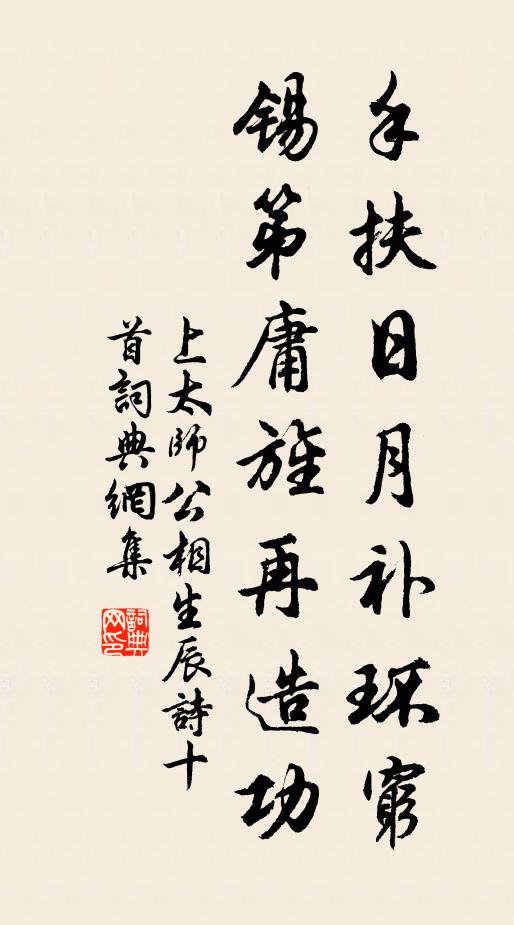 手扶日月补环穹
锡第庸旌再造功
上太师公相生辰詩十
首詞典網集
詞典
网印